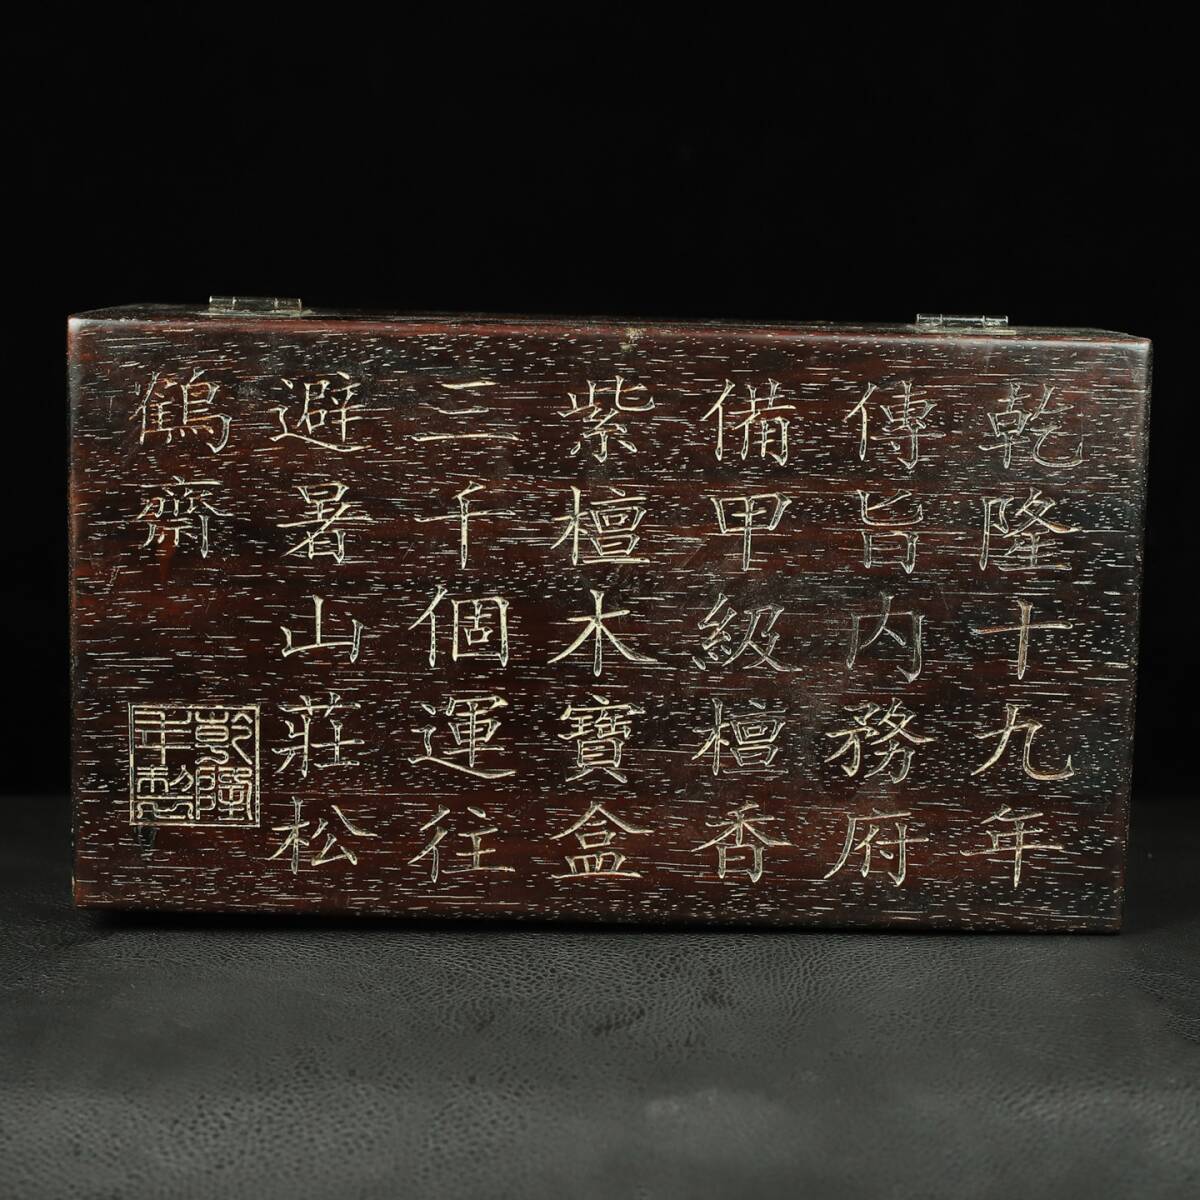 乾隆十九年
傳旨内務府
備甲級檀香
紫檀木寶盒
三千個運往
避暑山莊松
鶴齋
乾隆
年製